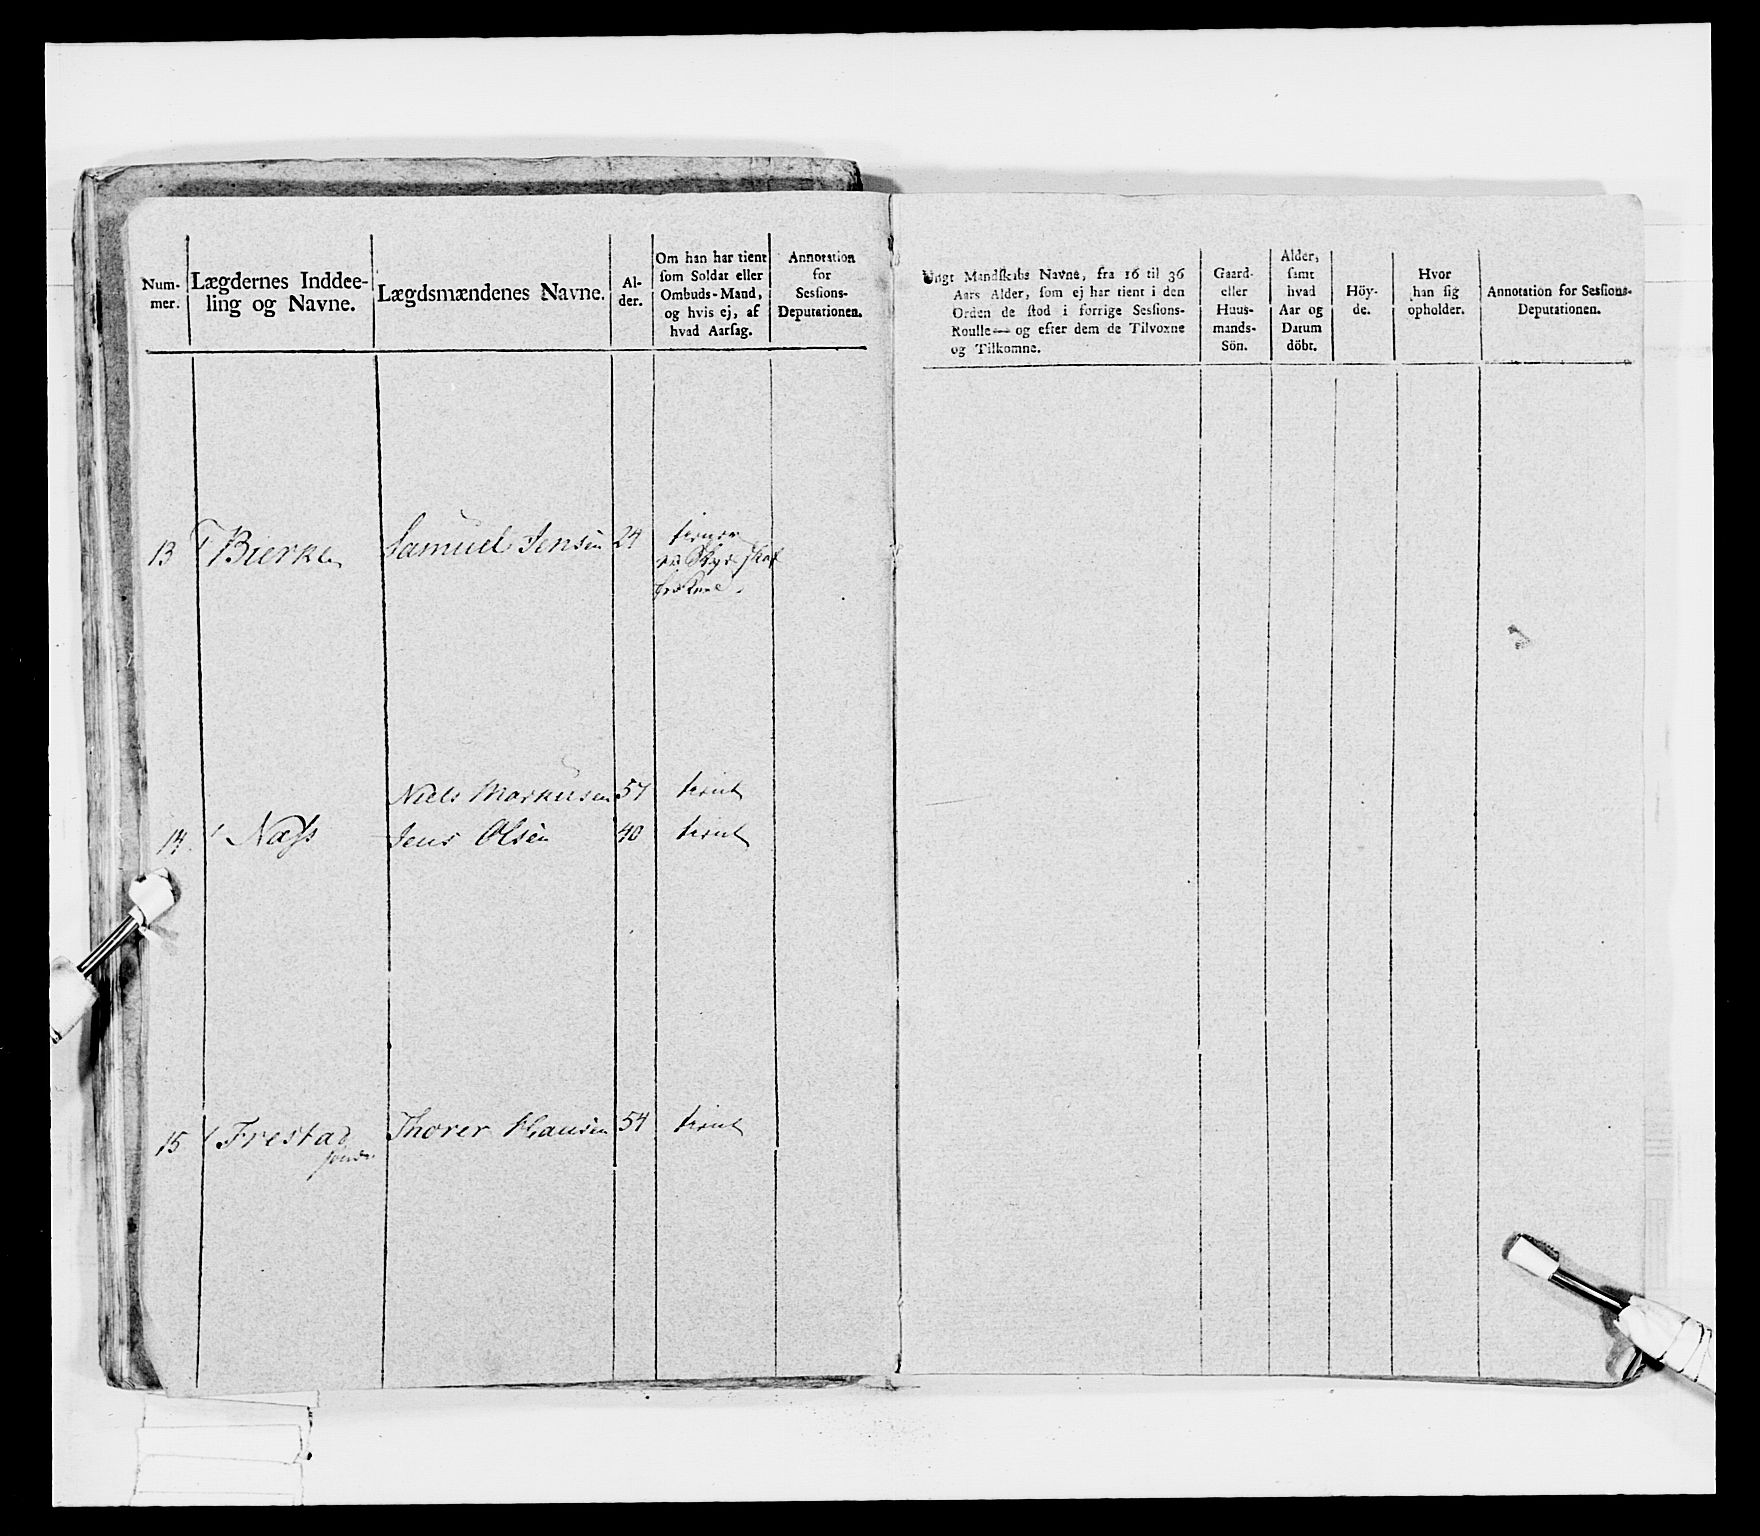 Num-
mer.
Lægdernes Inddee-
ling og Navne.
Lægdsmændenes Navne.
Al-
der.
Om han har tient
som Soldat eller
Ombuds-Mand,
og hvis ej, af
hvad Aarsag.
Annotation
for
Sessions-
Deputationen.
13 Bierke Samuel Jensen 24
Niels Markusen 57 tient
14. Næss Jens Olsen 40 tient
15 Frestad Thorer Hansen 54 tient
Ungt Mandskabs Navne, fra 16 til 36
Aars Alder, som ej har tient i den
Orden de stod i forrige Sessions-
Roulle— og efter dem de Tilvoxne
og Tilkomne.
Gaard-
eller
Huus-
mands-
Sön.
Alder,
samt
hvad
Aar og
Datum
döbt.
Höy-
de.
Hvor
han sig
opholder.
Annotation for Sessions-
Deputationen.